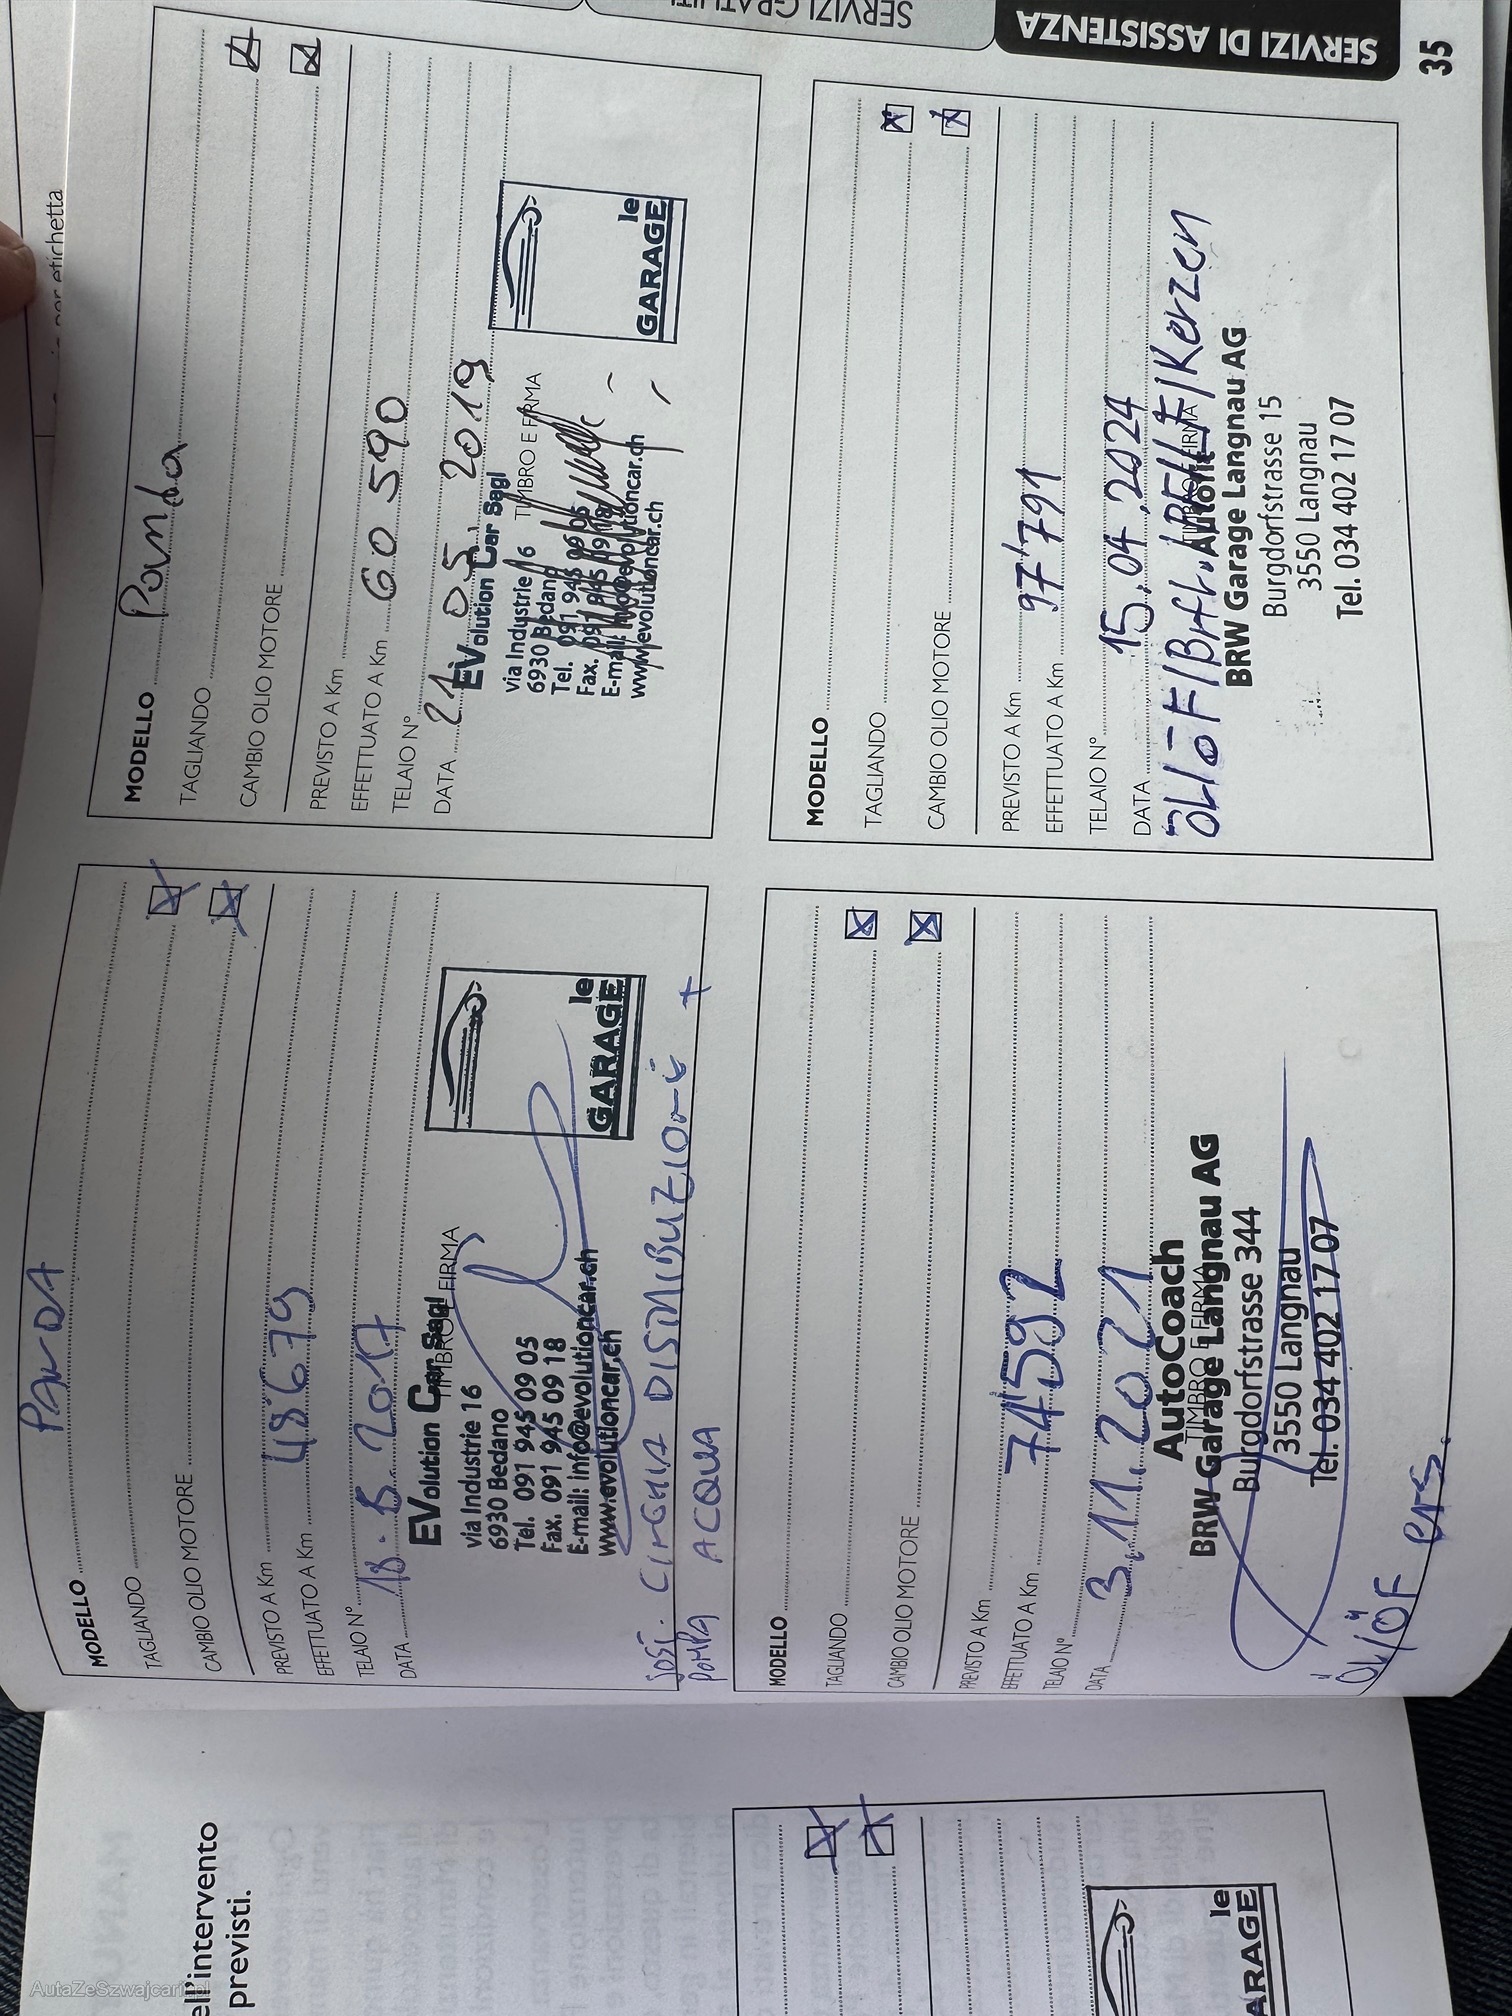 SERVIZI GRATUITI
SERVIZI DI ASSISTENZA
35
per etichetta
PANDA
MODELLO
TAGLIANDO
CAMBIO OLIO MOTORE
PREVISTO A Km
EFFETTUATO A Km 48679
TELAIO N°
DATA 18.5.2017
TIMBRO E FIRMA
EVolution Car Sagl
via Industrie 16
6930 Bedano
Tel. 091 945 09 05
Fax. 091 945 09 18
E-mail: info@evolutioncar.ch
www.evolutioncar.ch
le
GARAGE
SOST. CINGHIA DISTRIBUZIONE +
POMPA ACQUA
MODELLO Panda
TAGLIANDO
CAMBIO OLIO MOTORE
PREVISTO A Km
EFFETTUATO A Km 60 590
TELAIO N°
DATA 21 05. 2019
TIMBRO E FIRMA
EVolution Car Sagl
via Industrie 16
6930 Bedano
Tel. 091 945 09 05
Fax. 091 945 09 18
E-mail: info@evolutioncar.ch
www.evolutioncar.ch
le
GARAGE
MODELLO
TAGLIANDO
CAMBIO OLIO MOTORE
PREVISTO A Km
EFFETTUATO A Km 74'592
TELAIO N°
DATA 3.11.2021
TIMBRO E FIRMA
AutoCoach
BRW Garage Langnau AG
Burgdorfstrasse 344
3550 Langnau
Tel. 034 402 17 07
ÖL/ÖF ers.
MODELLO
TAGLIANDO
CAMBIO OLIO MOTORE
PREVISTO A Km
EFFETTUATO A Km 97'791
TELAIO N°
DATA 15.04.2024
ÖL/ÖF/Brfl./Kerzen
TIMBRO E FIRMA
Autofit
BRW Garage Langnau AG
Burgdorfstrasse 15
3550 Langnau
Tel. 034 402 17 07
ell'intervento
previsti.
le
ARAGE
AutaZeSzwajcarii.pl